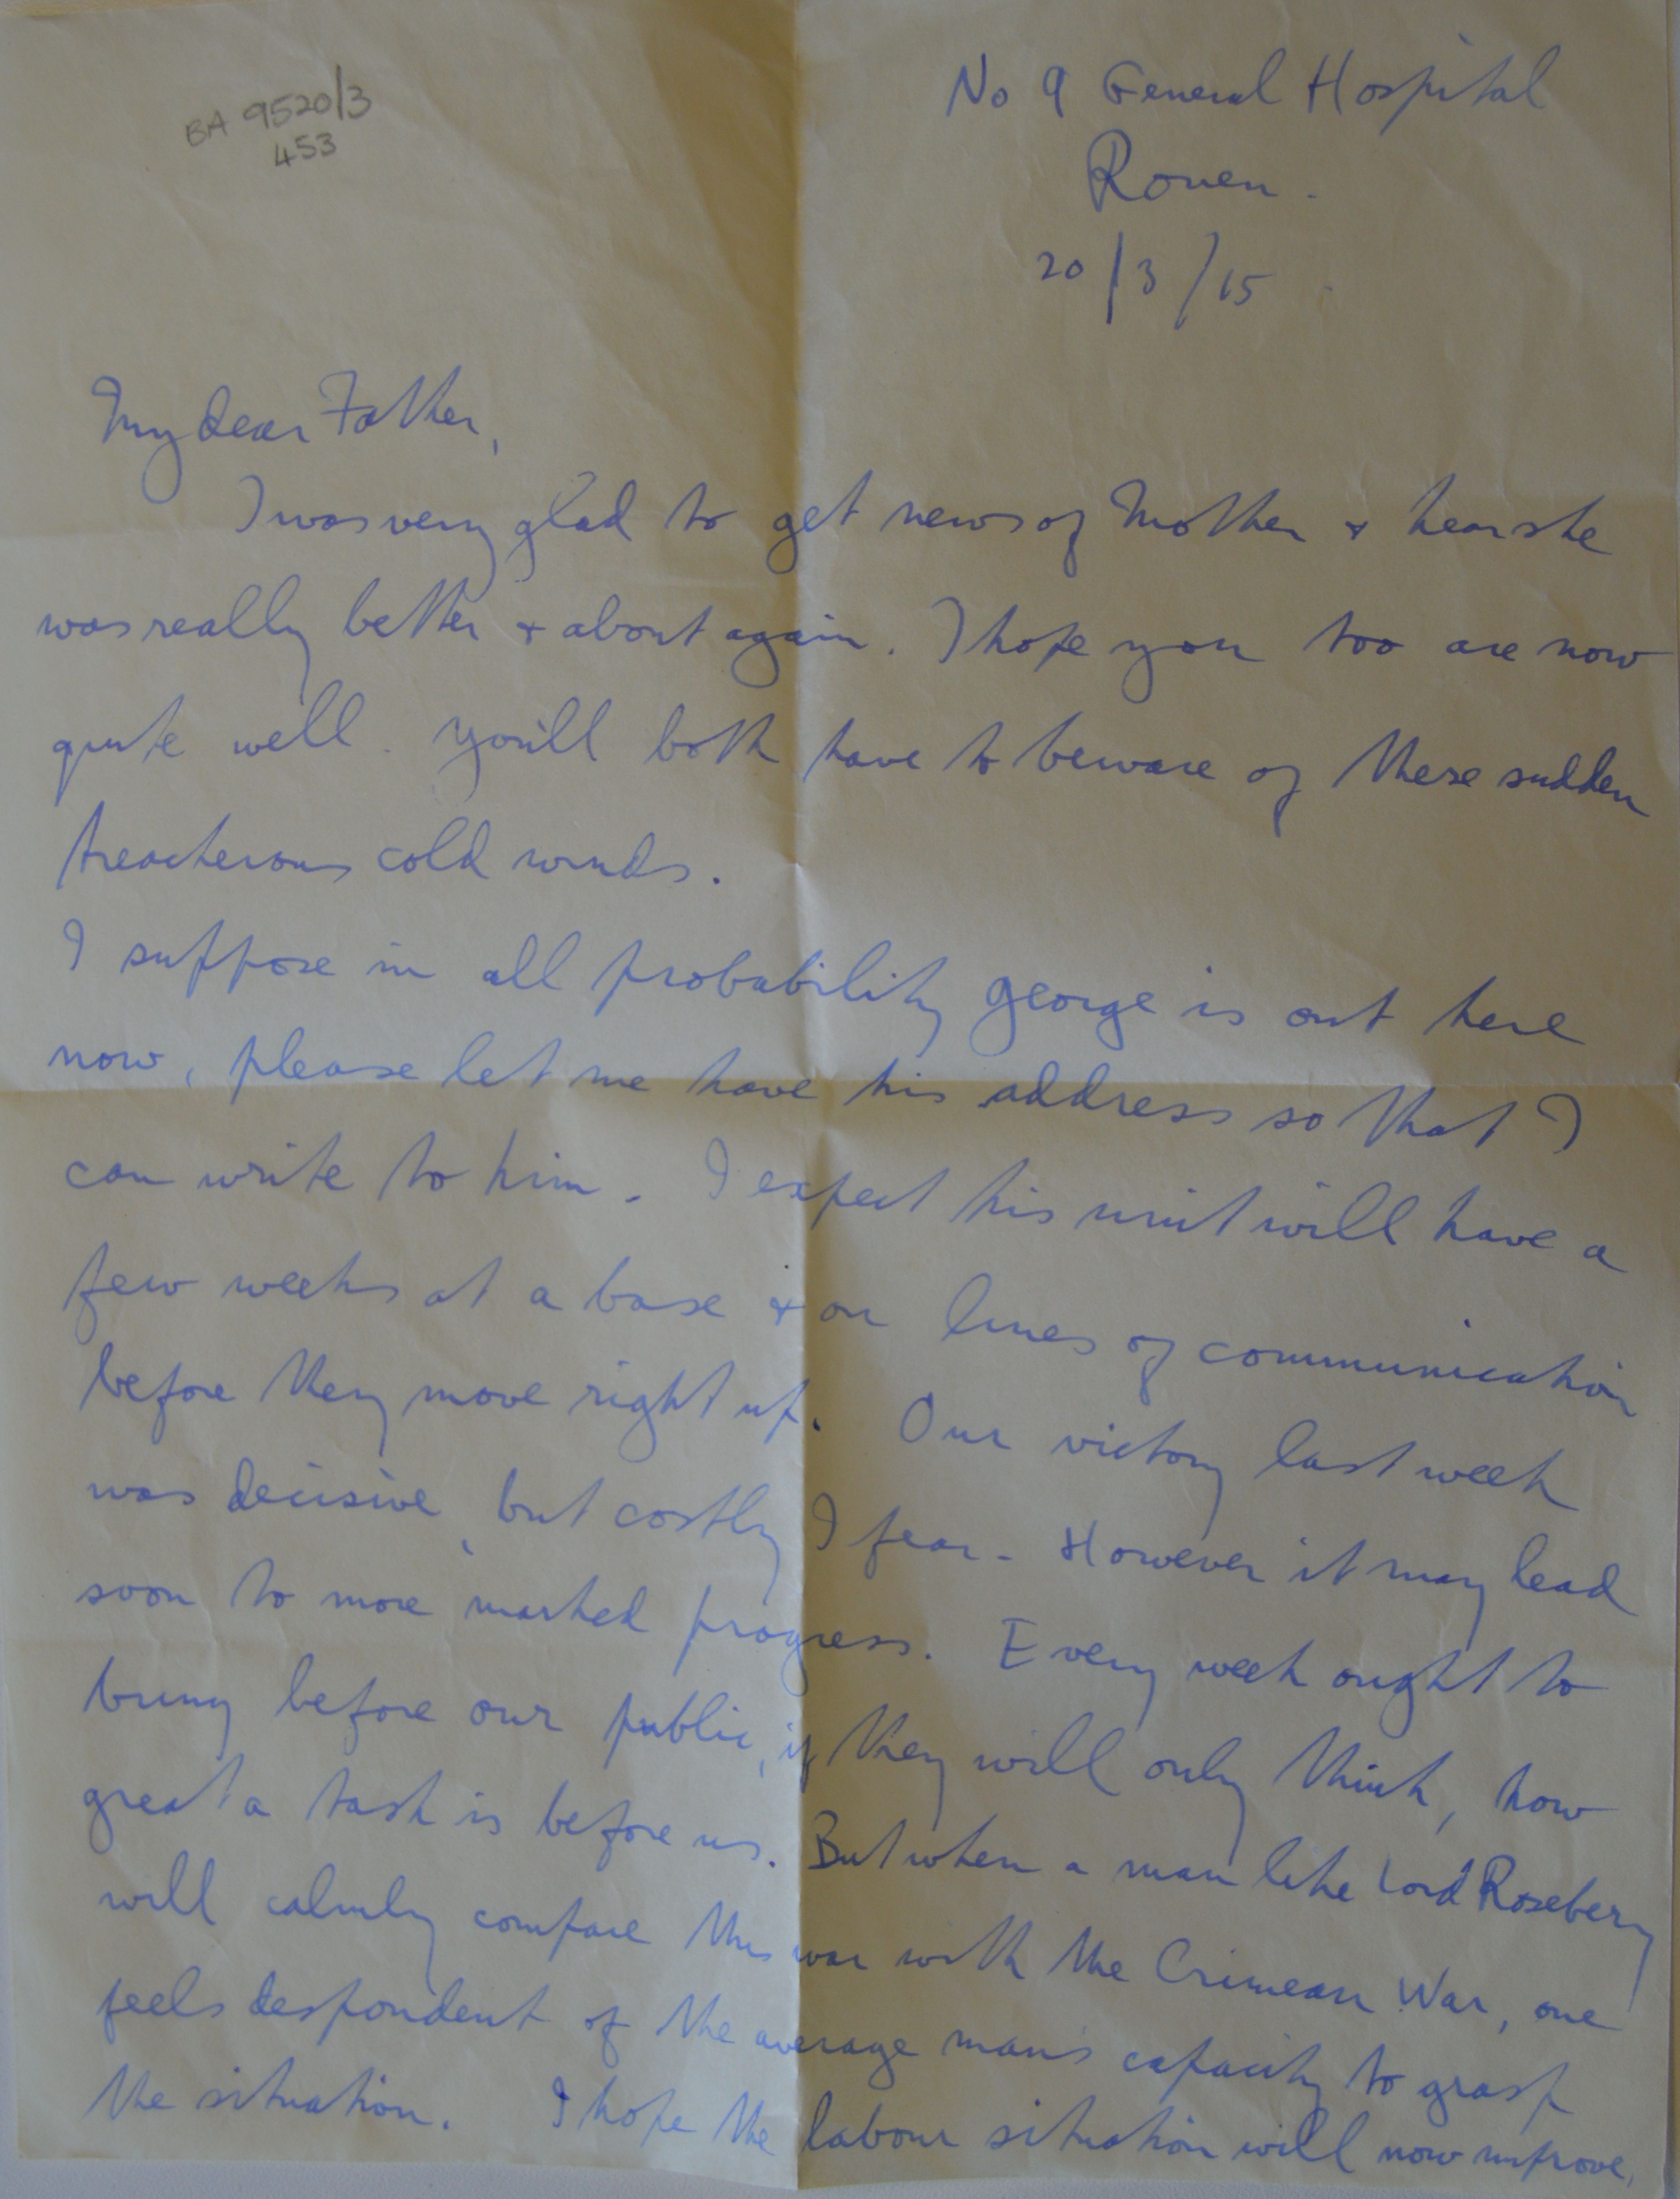 BA 9520/3
453
No 9 General Hospital
Rouen.
20/3/15
My dear Father,
I was very glad to get news of Mother & hear she
was really better & about again. I hope you too are now
quite well. You'll both have to beware of these sudden
treacherous cold winds.
I suppose in all probability George is out here
now, please let me have his address so that I
can write to him. I expect his unit will have a
few weeks at a base & on lines of communication
before they move right up. Our victory last week
was decisive, but costly I fear. However it may lead
soon to more marked progress. Every week ought to
bring before our public, if they will only think, how
great a task is before us. But when a man like Lord Rosebery
will calmly compare this war with the Crimean War, one
feels despondent of the average man's capacity to grasp
the situation. I hope the labour situation will now improve,